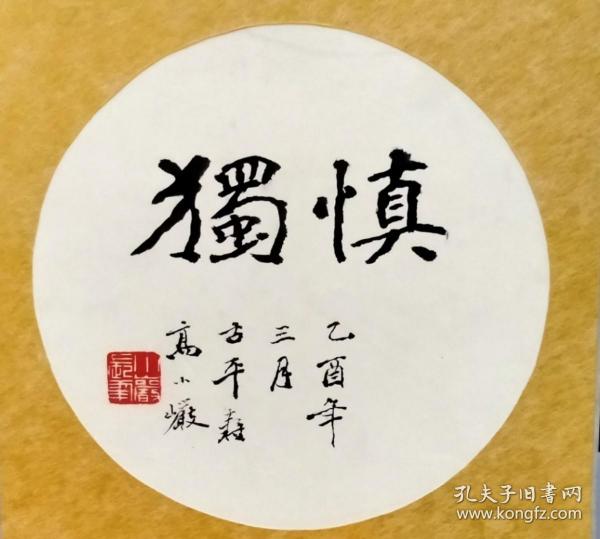 慎獨
乙酉年
三月
古平壽
高小巖
小巖
孔夫子旧書网
www.kongfz.com